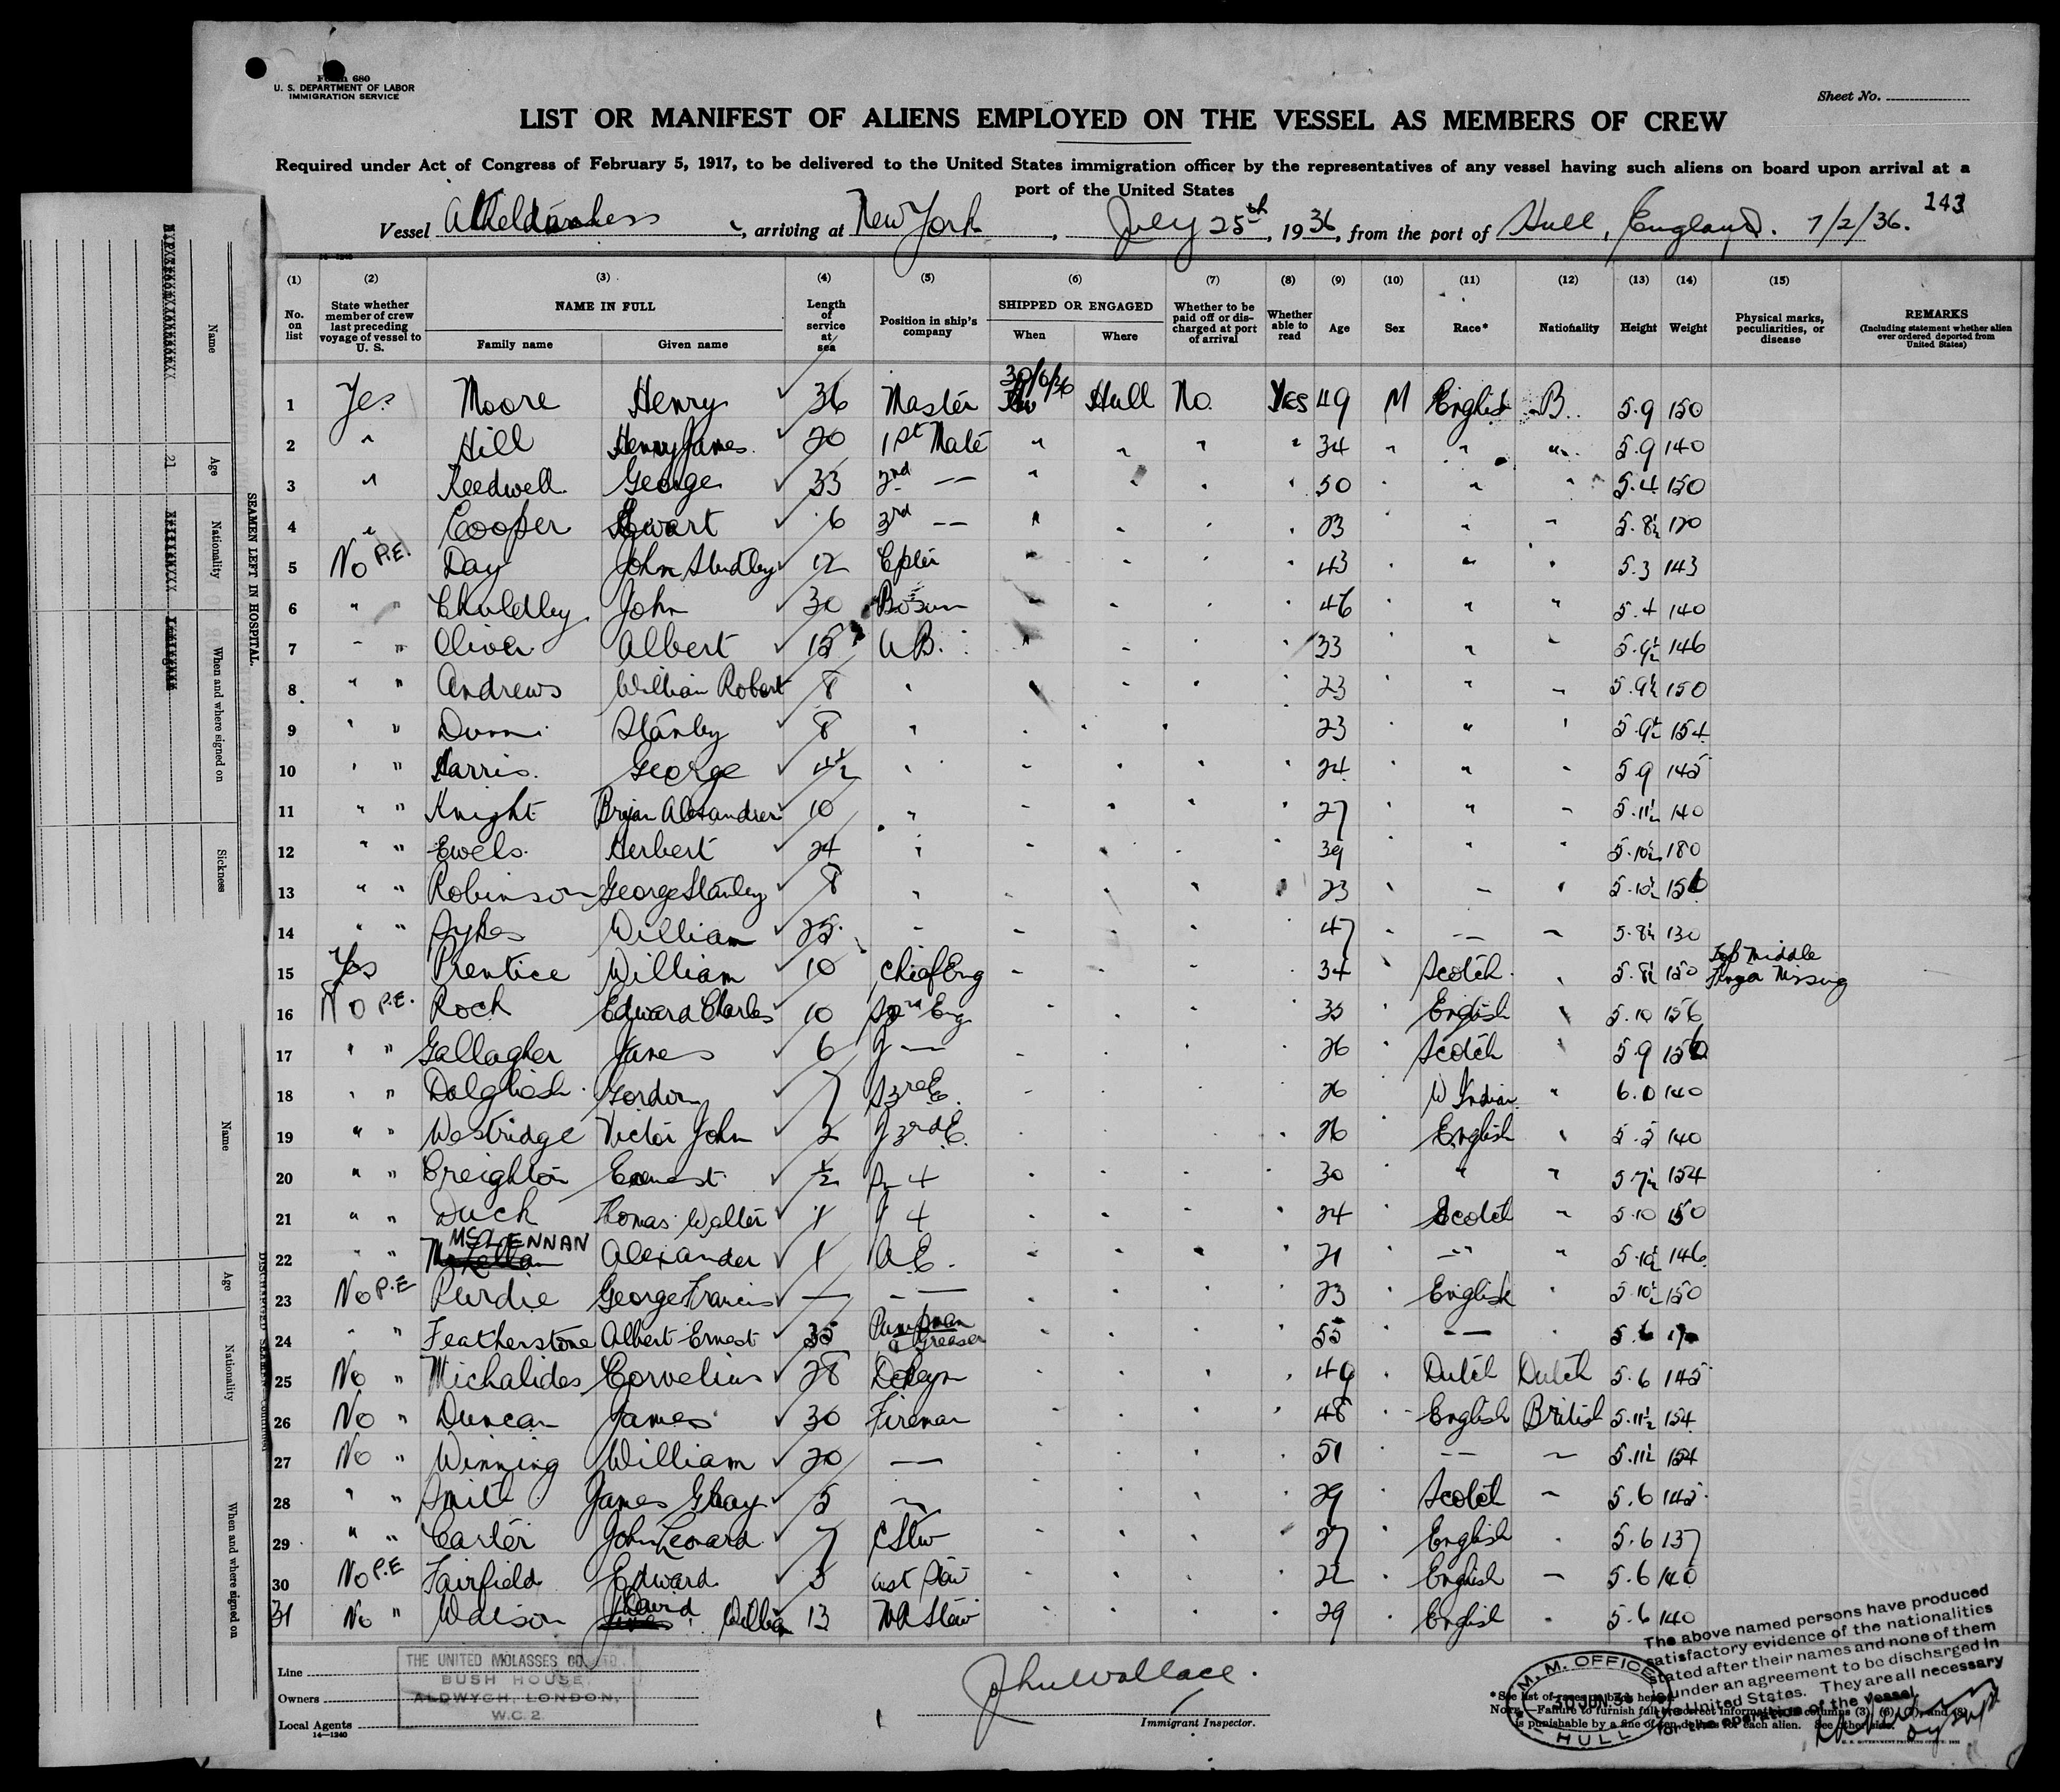 Form 680
U. S. DEPARTMENT OF LABOR
IMMIGRATION SERVICE
Sheet No.
LIST OR MANIFEST OF ALIENS EMPLOYED ON THE VESSEL AS MEMBERS OF CREW
Required under Act of Congress of February 5, 1917, to be delivered to the United States immigration officer by the representatives of any vessel having such aliens on board upon arrival at a
port of the United States
143
Vessel , arriving at New York , July 25th , 1936, from the port of Hull, England. 7/2/36.
(1) (2) (3) (4) (5) (6) (7) (8) (9) (10) (11) (12) (13) (14) (15)
No. on list State whether member of crew last preceding voyage of vessel to U. S. NAME IN FULL Family name Given name Length of service at sea Position in ship's company SHIPPED OR ENGAGED When Where Whether to be paid off or discharged at port of arrival Whether able to read Age Sex Race* Nationality Height Weight Physical marks, peculiarities, or disease REMARKS (Including statement whether alien ever ordered deported from United States)
1 Yes Moore Henry 36 Master 30/6/36 Hull No. Yes 49 M English B. 5.9 150
2 " Hill Henry James 20 1st Mate " " " " 34 " " " 5.9 140
3 " Reedwell George 33 2nd — " " " " 50 " " 5.4 150
4 " Cooper 6 3rd — " " " 23 " " 5.8½ 120
5 No P.E. Day John 12 " " " " 43 " " " 5.3 143
6 " " John 30 Bosun " " " 46 " " 5.4 140
7 " " Oliver Albert 18 A B. " " " 33 " " 5.9½ 146
8 " " Andrews William Robert 8 " " " " 23 " " 5.9½ 150
9 " " Stanley 8 " " " " 23 " " 5.9½ 154
10 " " Harris George 4½ " " " " 24 " " 5.9 145
11 " " Knight Bryan Alexander 10 " " " " 27 " " 5.11½ 140
12 " " Ewels Herbert 24 " " " " 39 " " 5.10½ 180
13 " " Robinson George Stanley 8 " " " " 23 " " 5.10½
14 " " Sykes William 25 " " " " 47 " — " 5.8½ 130
15 Yes Prentice William 10 Chief Eng " " " 34 " Scotch " 5.8½ 150 Top Middle Finger Missing
16 No P.E. Rock Edward Charles 10 Eng " " " 35 " English " 5.10 156
17 " " Gallagher James 6 J — " " " 26 " Scotch " 5.9
18 " " Dalgliesh Gordon 7 S 3rd E. " " " 26 " W Indian " 6.0 140
19 " " Westridge Victor John 2 J 3rd E. " " " 26 " English " 5.5 140
20 " " Creighton Ernest ½ 4 " " " 30 " " " 5.7½ 154
21 " " Duck Thomas Walter 1 J 4 " " " 24 " Scotch " 5.10 150
22 " " McLENNAN Alexander 1 A.E. " " " 21 " — " " 5.10½ 146
23 No P.E Purdie George Francis — — — 23 " English " 5.10½ 150
24 " " Featherstone Albert Ernest 35 Pumpman & Greaser " " " 55 " — " 5.6
25 No " Michalides Cornelius 28 " " " " 49 " Dutch Dutch 5.6 145
26 No " Duncan James 30 Fireman " " " 48 " English British 5.11½ 154
27 No " Winning William 20 — " " " 51 " — " 5.11½ 154
28 " " Smith James Gray 5 " " " " 29 " Scotch " 5.6 145
29 " " Carter John Leonard 7 C Stw " " " 27 " English " 5.6 137
30 No P.E Fairfield Edward 3 " " " 22 " English — 5.6 140
31 No " David William 13 " " " 29 " English " 5.6 140
Line
Owners
Local Agents
14—1240
THE UNITED MOLASSES CO. LTD.
BUSH HOUSE,
ALDWYCH, LONDON,
W.C. 2.
John Wallace.
Immigrant Inspector.
The above named persons have produced
satisfactory evidence of the nationalities
stated after their names and none of them
under an agreement to be discharged in
the United States. They are all necessary
for the operation of the vessel.
M. M. OFFICE
30 JUN. 36
HULL
* See list of races on back hereof.
NOTE.—Failure to furnish full and correct information in columns (3), (6), (7), and (8)
is punishable by a fine of ten dollars for each alien. See other side.
SEAMEN LEFT IN HOSPITAL.
Name
Age
Nationality
When and where signed on
Sickness
21
DISCHARGED SEAMEN—Continued
Name
Age
Nationality
When and where signed on